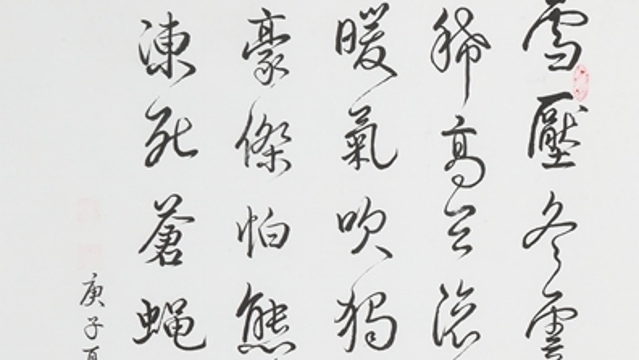 雪壓冬雲
稀高天滾
暖氣吹獨
豪傑怕熊
凍死蒼蝇
庚子夏